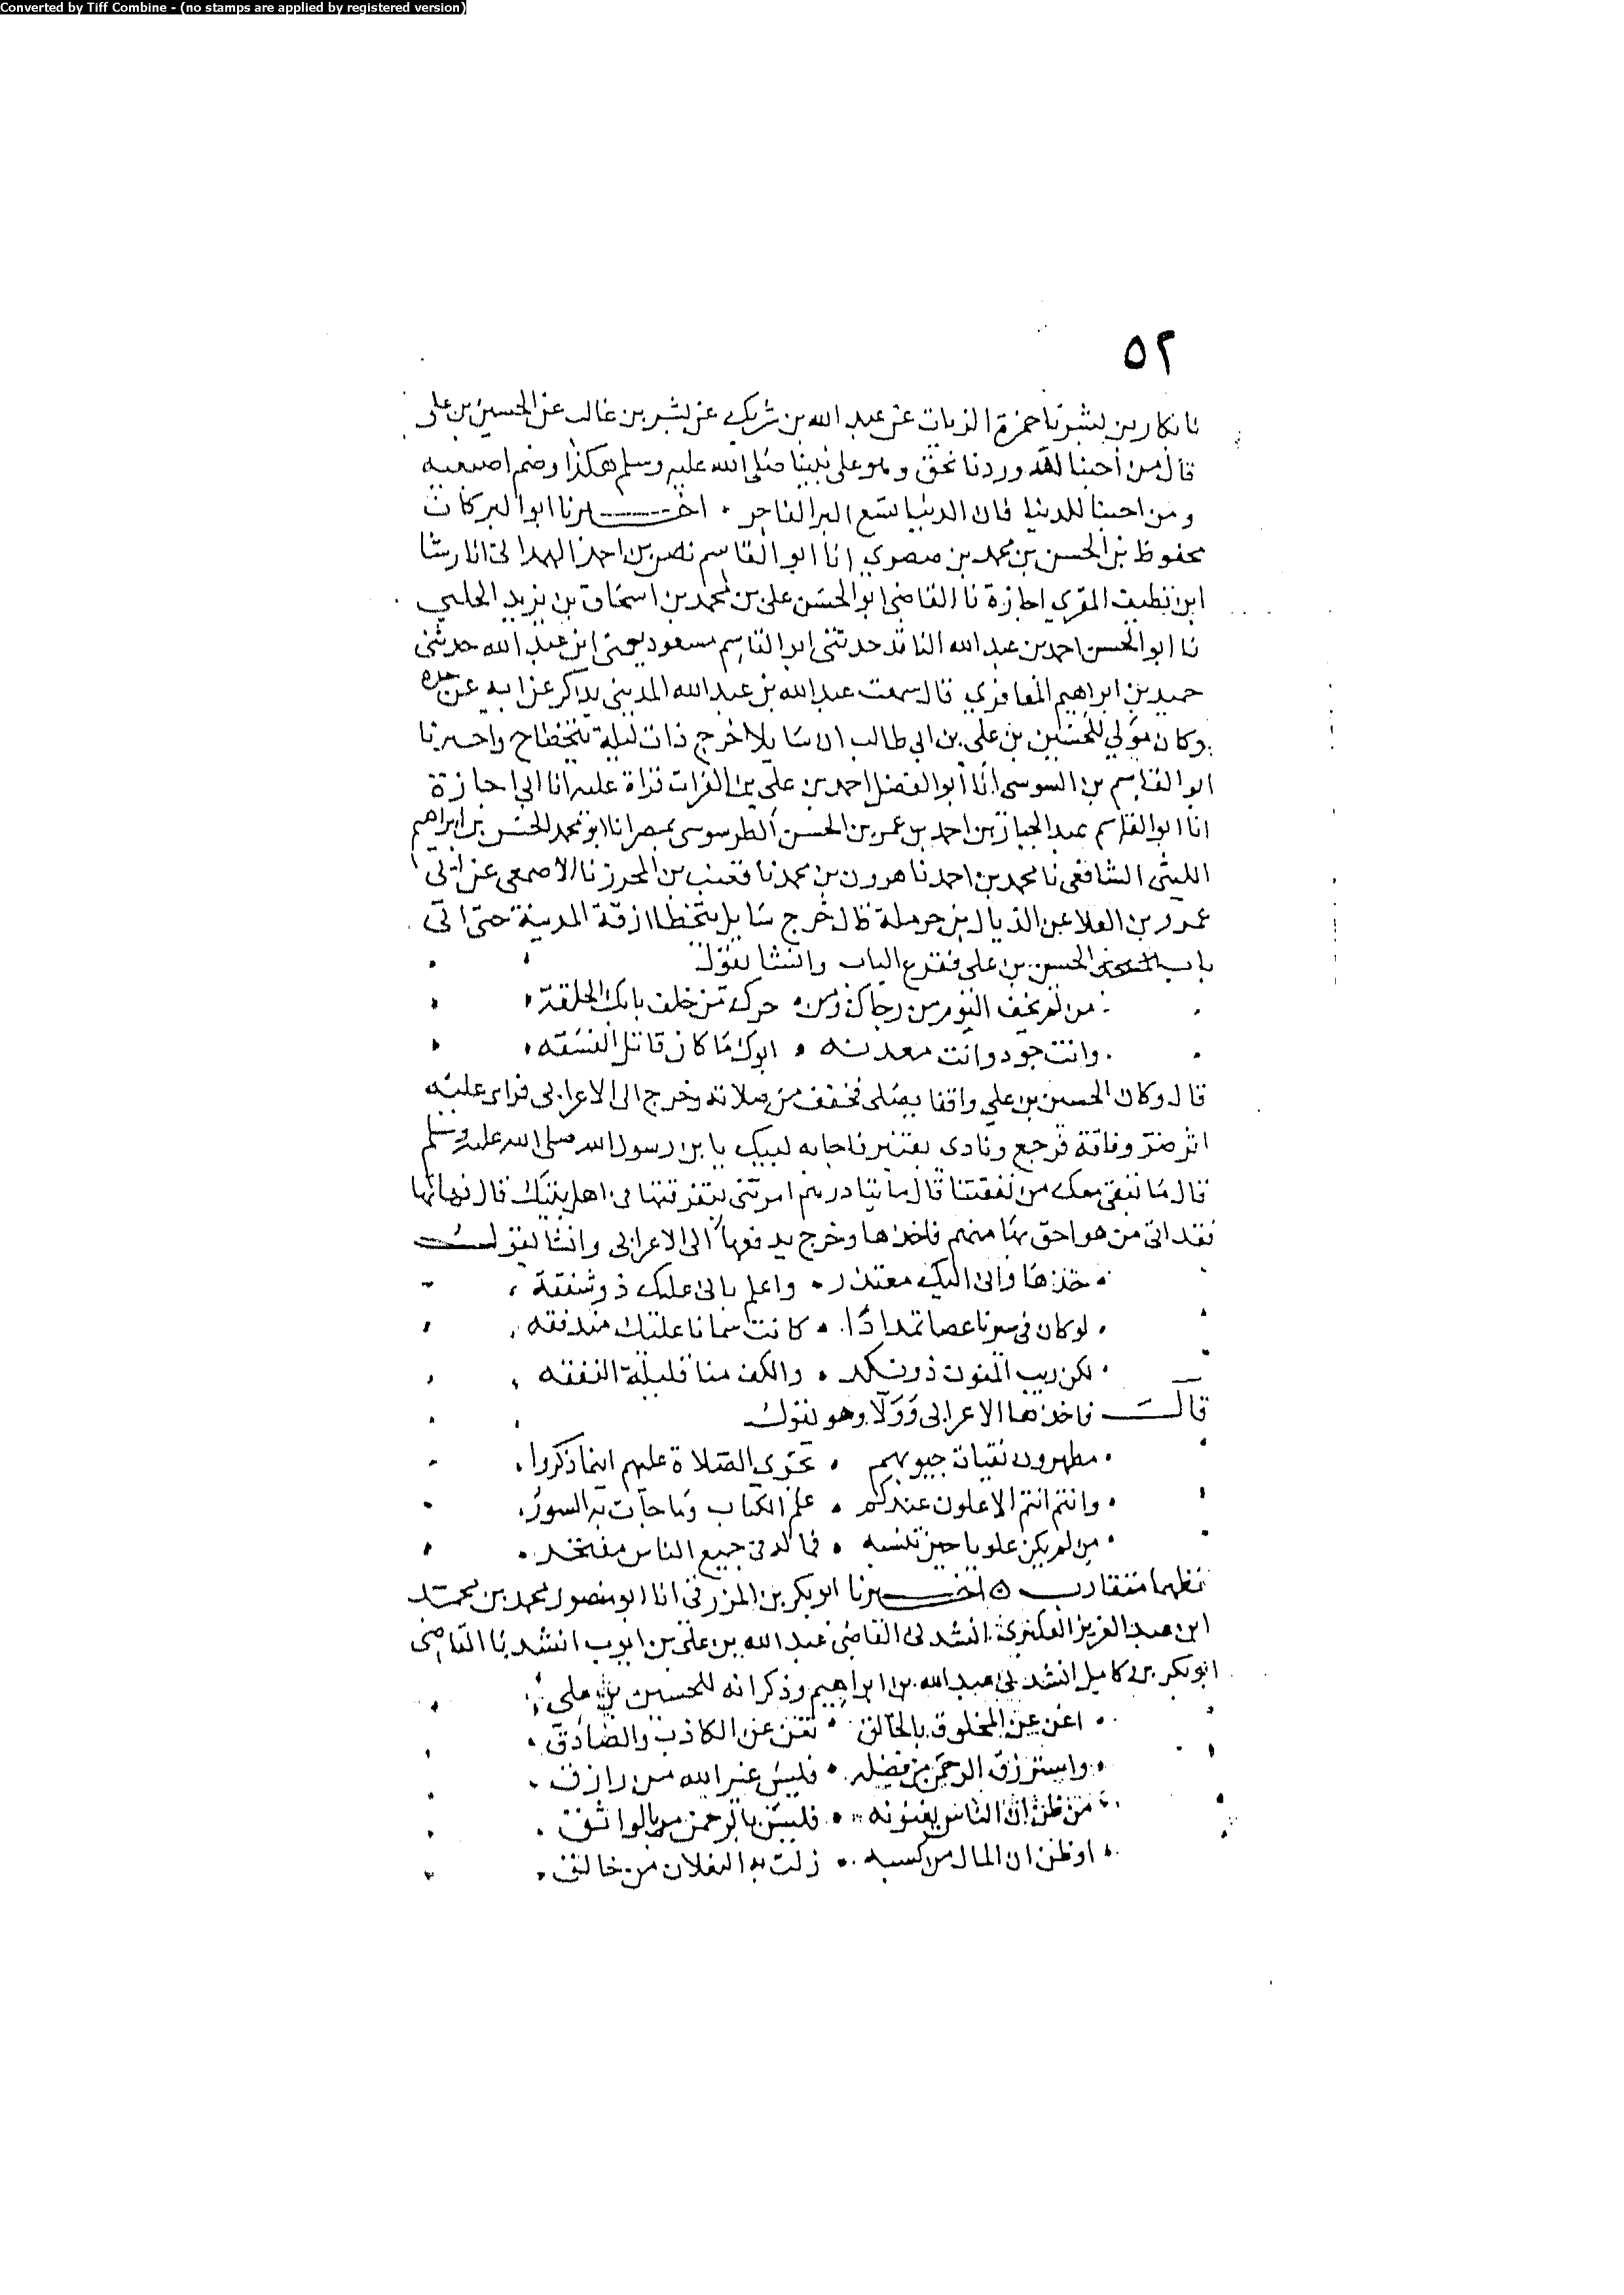 Converted by Tiff Combine - (no stamps are applied by registered version)
٥٢
نا بكار بن بشر نا حمزة الزيات عن عبد الله بن شريك عن بشر بن غالب عن الحسين بن علي
قال من أحبنا لله وردنا نحن وهو على نبينا صلى الله عليه وسلم هكذا وضم اصبعيه
ومن احبنا للدنيا فان الدنيا تسع البر الفاجر . اخبرنا ابوا البركات
محفوظ بن الحسن بن محمد بن صصري انا ابو القاسم نصر بن احمد الهمداني انا رشا
ابن نظيف المقري اجازة نا القاضي ابو الحسن علي بن محمد بن اسحاق بن يزيد الحلبي
نا ابو الحسن احمد بن عبد الله الناقد حدثني ابو القاسم مسعود يعني ابن عبد الله حدثني
حميد بن ابراهيم المعافري قال سمعت عبد الله بن عبد الله المديني يذاكر عن ابيه عن جده
وكان مولي للحسين بن علي بن ابي طالب ان سايلا خرج ذات ليلة يتخطا ح واخبرنا
ابو القاسم بن السوسي انا ابو الفضل احمد بن علي بن الفرات قراة عليه انا ابي اجازة
انا ابو القاسم عبد الجبار بن احمد بن عمر بن الحسن الطرسوسي بمصر انا ابو محمد الحسن بن ابراهيم
الليثي الشافعي نا محمد بن احمد نا هرون بن محمد نا قعنب بن المحرز نا الاصمعي عن ابي
عمرو بن العلا عن الذيال بن حرملة قال خرج سايل يتخطا ازقة المدينة حتى اتى
باب الحسن بن علي فقرع الباب وانشا يقول
من لم يخف اليوم من رجاك ومن . حرك من خلف بابك الحلقة
وانت جود وانت معدنه . ابوك ما كان قاتل الفسقه
قال وكان الحسين بن علي واقفا يصلي فخفف من صلاته وخرج الى الاعرابي فراى عليه
اثر ضر وفاقة فرجع ونادى بقنبر فاجابه لبيك يا بن رسول الله صلى الله عليه وسلم
قال ما تبقى معك من نفقتنا قال مايتا درهم امرتني بتفرقتها في اهل بيتك قال فهاتها
فقد اتى من هو احق بها منهم فاخذها وخرج يدفعها الى الاعرابي وانشا يقول
خذها فاني اليك معتذر . واعلم باني عليك ذو شفقة
لو كان في سيرنا عصا تمد اذا . كانت سمانا عليك مندفقه
لكن ريب المنون ذو نكد . والكف منا قليلة النفقه
قال فاخذها الاعرابي وولا وهو يقول
مطهرون نقيات جيوبهم . تجري الصلاة عليهم اينما ذكروا
وانتم انتم الاعلون عندكم . علم الكتاب وما جآت به السور
من لم يكن علويا حين تنسبه . فما له في جميع الناس مفتخر
نظهما متقارب ه اخبرنا ابو بكر بن المزرفي انا ابو منصور محمد بن محمد
ابن عبد العزيز العكبري انشدني القاضي عبد الله بن علي بن ايوب انشدنا القاضي
ابو بكر بن كامل انشدني عبد الله بن ابراهيم وذكر انه للحسين بن علي
اغن عن المخلوق بالخالق . تغن عن الكاذب والصادق
واسترزق الرحمن من فضله . فليس غير الله من رازق
من ظن ان الناس يغنونه . فليس بالرحمن بالواثق
او ظن ان المال من كسبه . زلت به النعلان من خالق